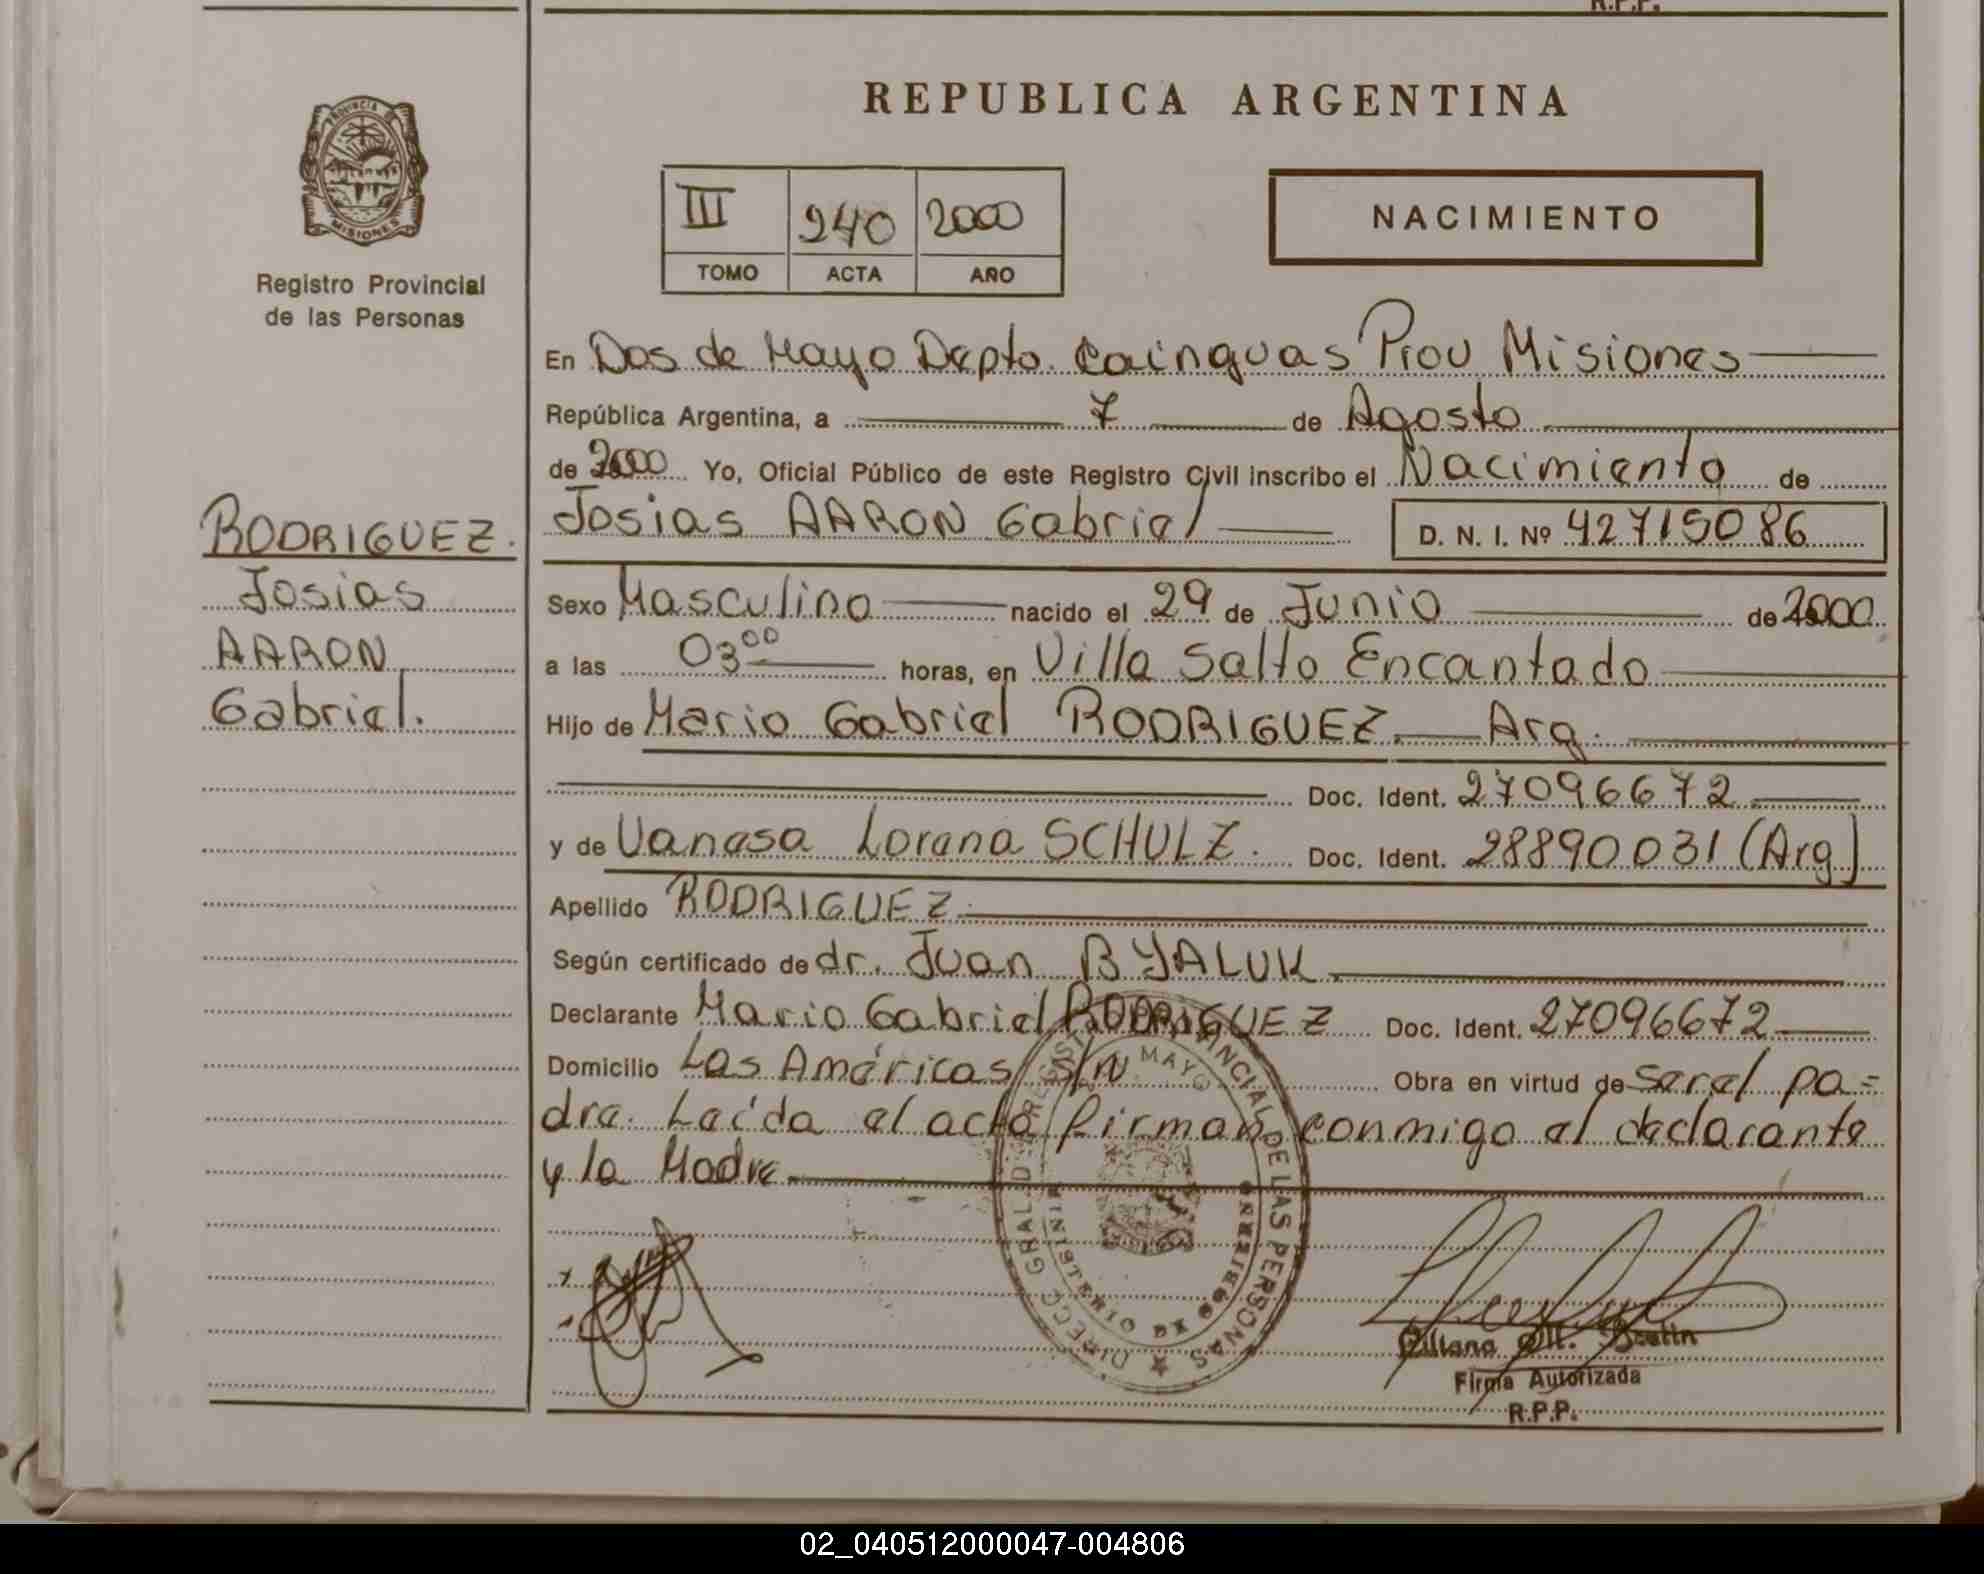 R.P.P.
REPUBLICA ARGENTINA
PROVINCIA
MISIONES
Registro Provincial
de las Personas
III 240 2000
TOMO ACTA AÑO
NACIMIENTO
En Dos de Mayo Depto. Cainguas Prov Misiones
República Argentina, a 7 de Agosto
de 2000 Yo, Oficial Público de este Registro Civil inscribo el Nacimiento de
Josias AARON Gabriel D. N. I. Nº 42715086
RODRIGUEZ.
Josias
AARON
Gabriel.
Sexo Masculino nacido el 29 de Junio de 2000
a las 03 00 horas, en Villa Salto Encantado
Hijo de Mario Gabriel RODRIGUEZ. Arg.
Doc. Ident. 27096672
y de Vanesa Lorena SCHULZ. Doc. Ident. 28890031 (Arg)
Apellido RODRIGUEZ.
Según certificado de dr. Juan BYALUK
Declarante Mario Gabriel RODRIGUEZ Doc. Ident. 27096672
Domicilio Las Américas S/N. Obra en virtud de ser el pa=
dre. Leída el acta firman conmigo el declarante
y la Madre
DIRECC GRAL D REGISTRO PROVINCIAL DE LAS PERSONAS
MAYO
MINISTERIO DE GOBIERNO
Firma Autorizada
R.P.P.
02_040512000047-004806